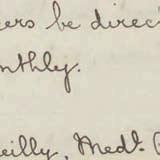 ers be direc
nthly.
eilly, Medl.